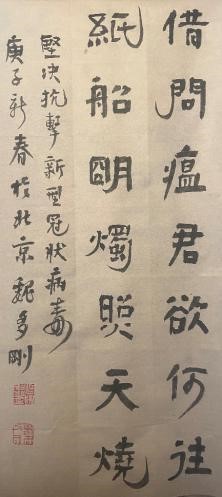 借問瘟君欲何往
紙船明燭照天燒
堅决抗擊新型冠狀病毒
庚子新春於北京魏多剛